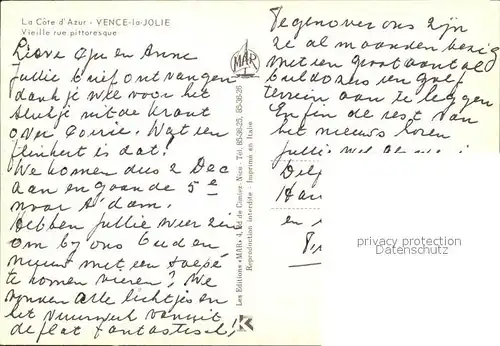 La Côte d'Azur - VENCE-la-JOLIE
Vieille rue pittoresque
Lieve Opu en Anne
Jullie brief ontvangen
dank je wel voor het
stukje uit de krant
over Corrie. Wat een
flinkert is dat!
We komen dus 2 Dec
aan en gaan de 5e
naar A'dam.
Hebben jullie weer zin
om bij ons Oud en
nieuw met een soepé
te komen vieren? We
vonden alle lichtjes en
het vuurwerk vanuit
de flat fantastisch!
MAR
Les Editions «MAR» 4, Bd de Cimiez - Nice - Tél. 85-36-25, 85-36-26
Reproduction interdite - Imprimé en Italie
K
Tegenover ons zijn
ze al maanden bezig
met een groot aantal
buldozers een golf
terrein aan te leggen
Enfin de rest van
het nieuws horen
jullie wel
en
privacy protection
oldthing.de